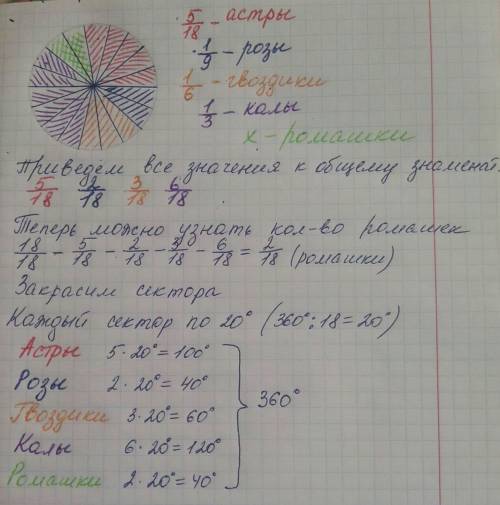 5/18 - астры
1/9 - розы
1/6 - гвоздики
1/3 - калы
x - ромашки
Приведём все значения к общему знаменат.
5/18 2/18 3/18 6/18
Теперь можно узнать кол-во ромашек
18/18 - 5/18 - 2/18 - 3/18 - 6/18 = 2/18 (ромашки)
Закрасим сектора
Каждый сектор по 20° (360°:18=20°)
Астры 5·20°=100°
Розы 2·20°=40°
Гвоздики 3·20°=60°
Калы 6·20°=120°
Ромашки 2·20°=40°
360°